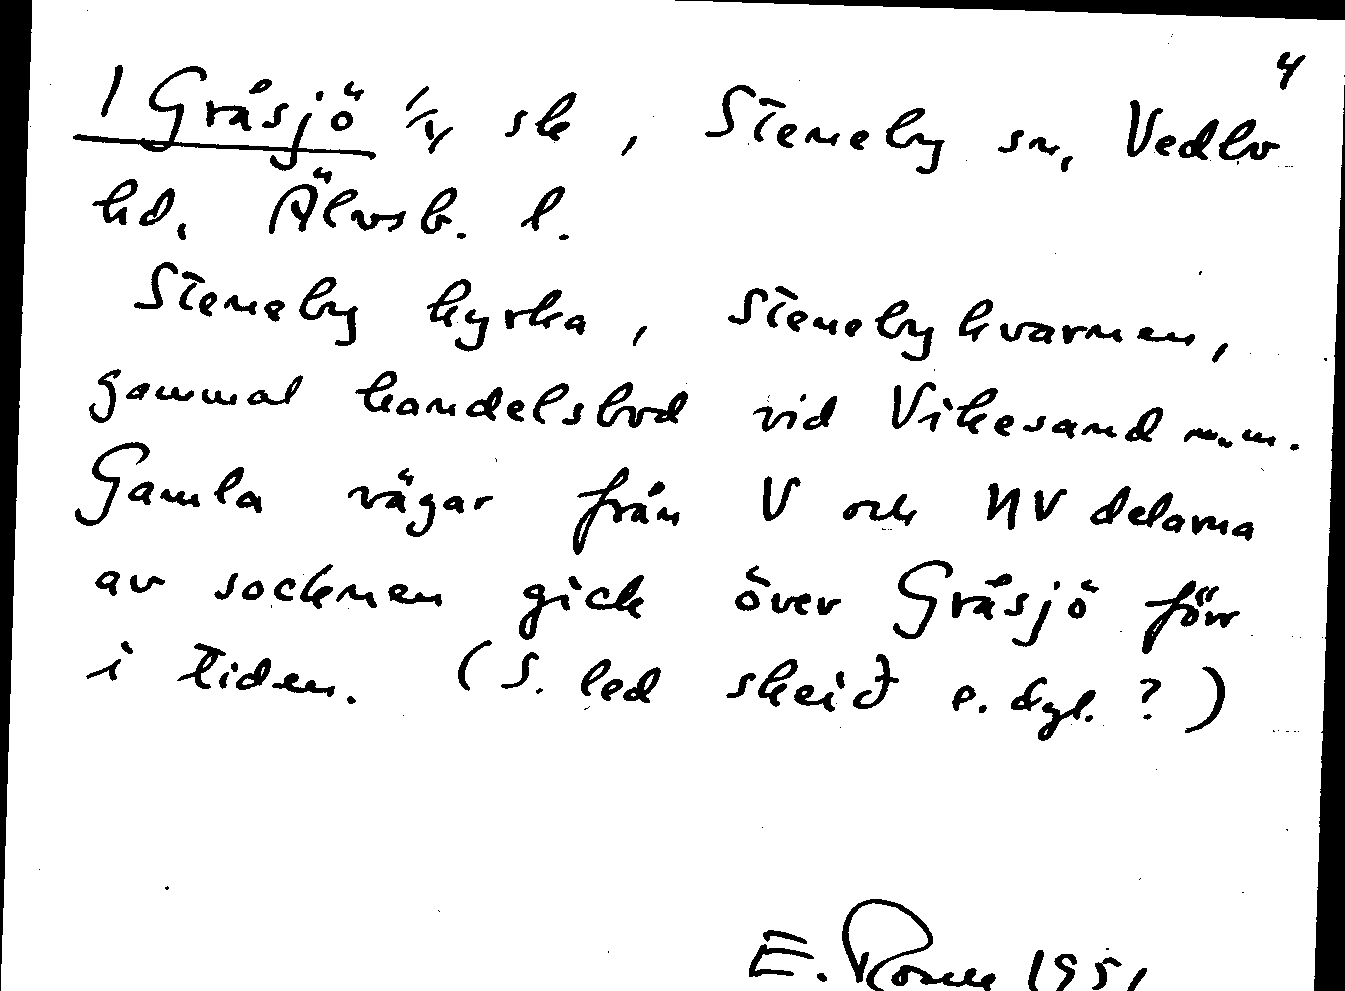 4
1 Gråsjö 1/4 sk, Steneby sn, Vedbo
hd. Älvsb. l.
Steneby kyrka, Stenebykvarnen,
gammal handelsbod vid Vikesand m.m.
Gamla vägar från V och NV delarna
av socknen gick över Gråsjö förr
i tiden. (S. led skeið e. dyl. ?)
E. 1951